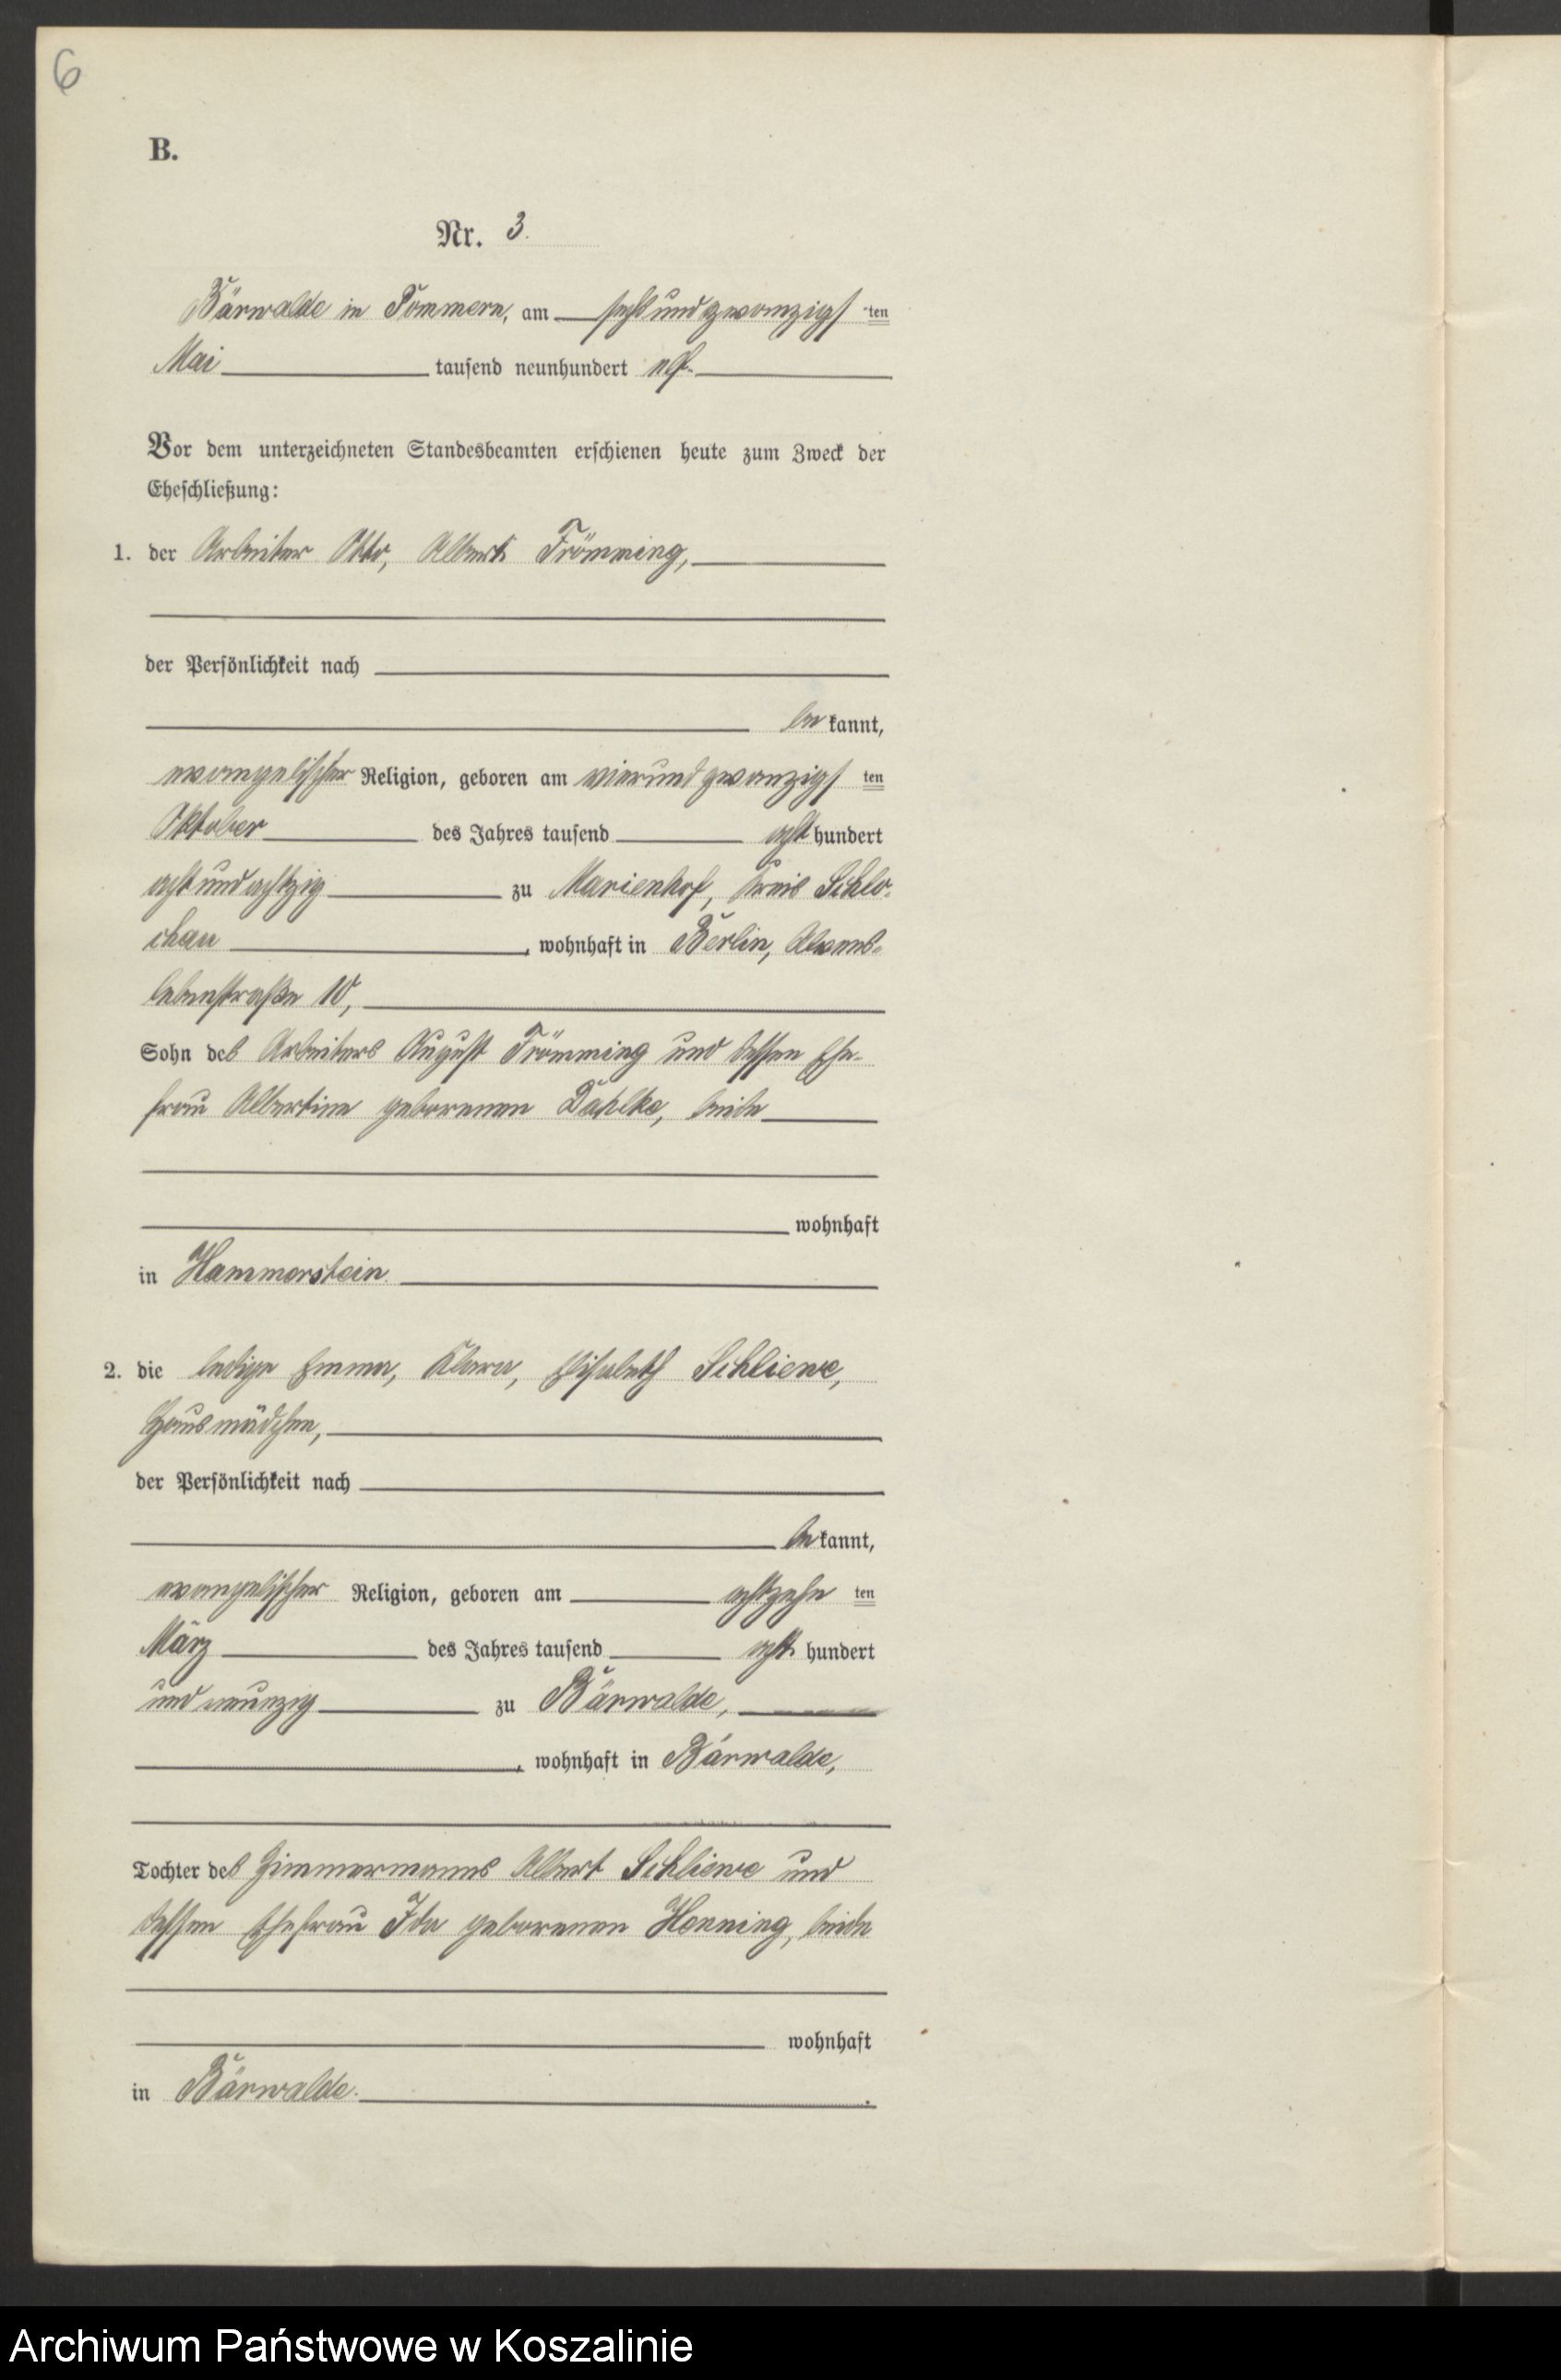 6
B.
Nr. 3.
Bärwalde in Pommern, am sechsundzwanzigsten
Mai tausend neunhundert elf.
Vor dem unterzeichneten Standesbeamten erschienen heute zum Zweck der
Eheschließung:
1. der Arbeiter Otto, Albert Frömming,
der Persönlichkeit nach
bekannt,
evangelischer Religion, geboren am vierundzwanzigsten
Oktober des Jahres tausend achthundert
achtundachtzig zu Marienhof, Kreis Schlo-
chau, wohnhaft in Berlin, Alvens-
lebenstraße 10,
Sohn des Arbeiters August Frömming und dessen Ehe-
frau Albertine geborenen Dahlke, beide
wohnhaft
in Hammerstein
2. die ledige Emma, Klara, Elisabeth Schliewe,
Hausmädchen,
der Persönlichkeit nach
bekannt,
evangelischer Religion, geboren am achtzehnten
März des Jahres tausend acht hundert
und neunzig zu Bärwalde,
, wohnhaft in Bärwalde,
Tochter des Zimmermanns Albert Schliewe und
dessen Ehefrau Ida geborenen Henning, beide
wohnhaft
in Bärwalde.
Archiwum Państwowe w Koszalinie